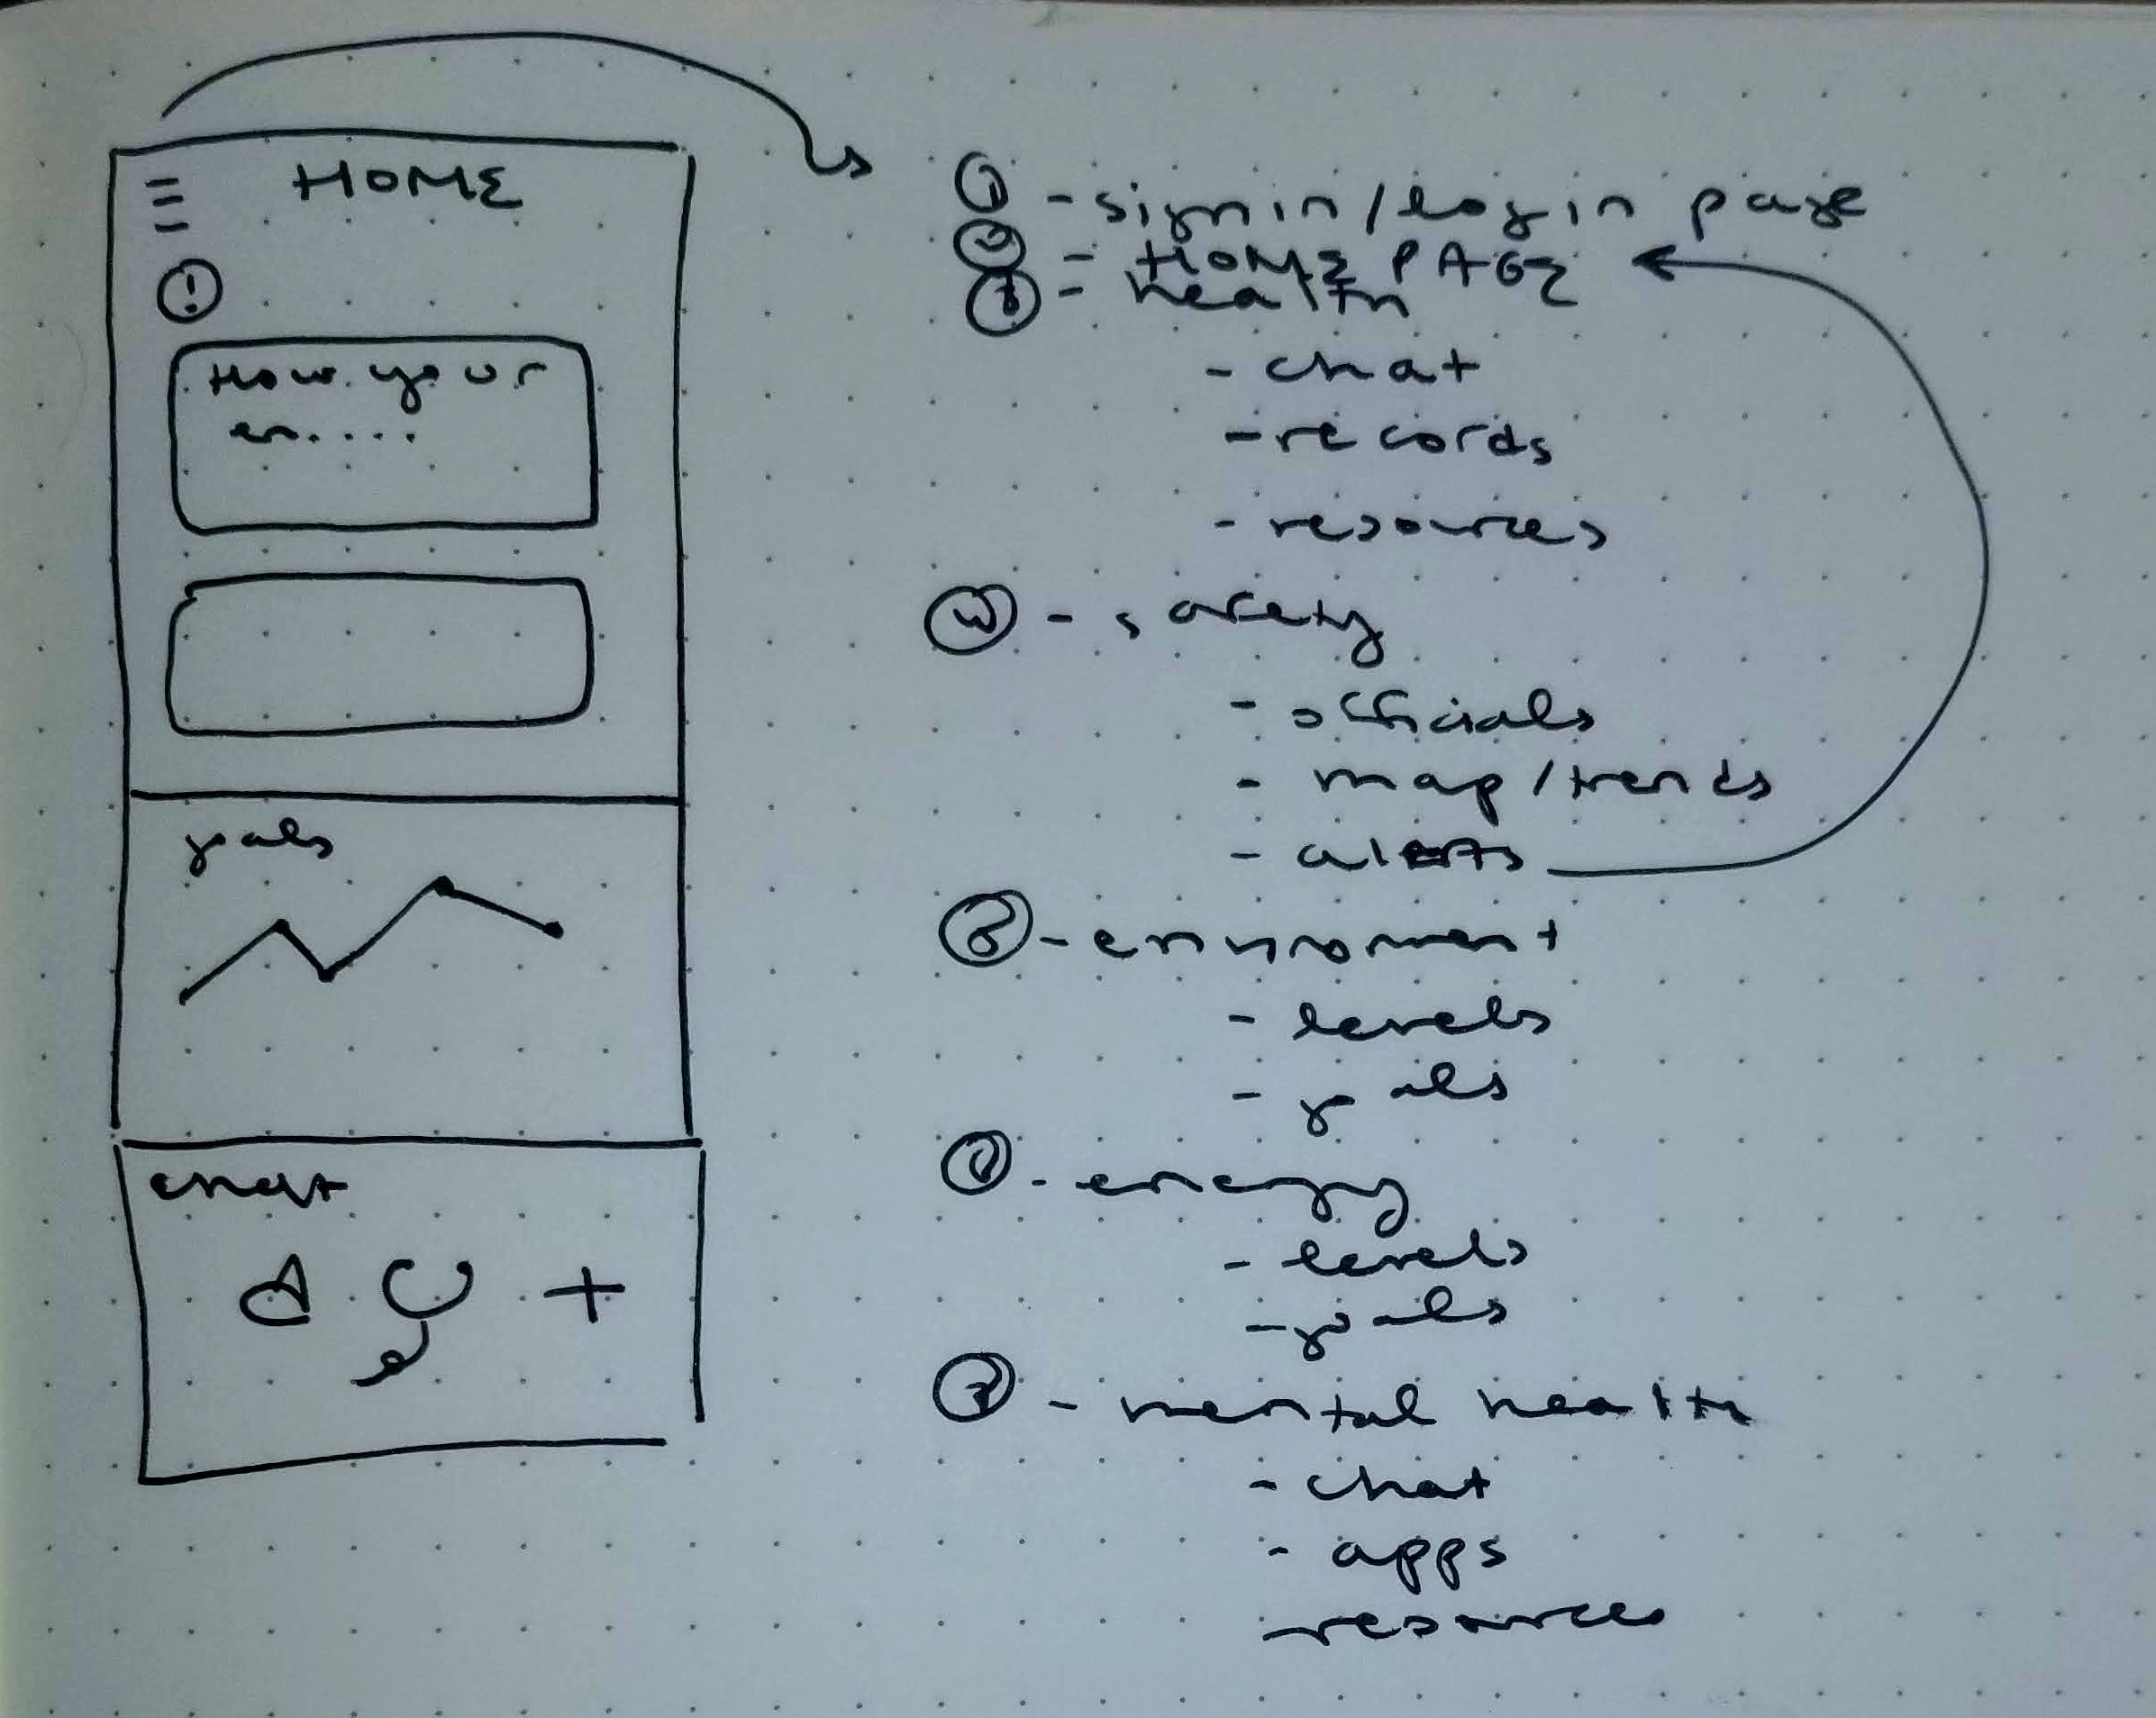 HOME
!
How your
en....
goals
chat
+
① - signin/login page
② - HOME PAGE
③ - health
- chat
- records
- resources
④ - safety
- officials
- map/trends
- alerts
- enviroment
- levels
- goals
- energy
- levels
- goals
- mental health
- chat
- apps
- resources